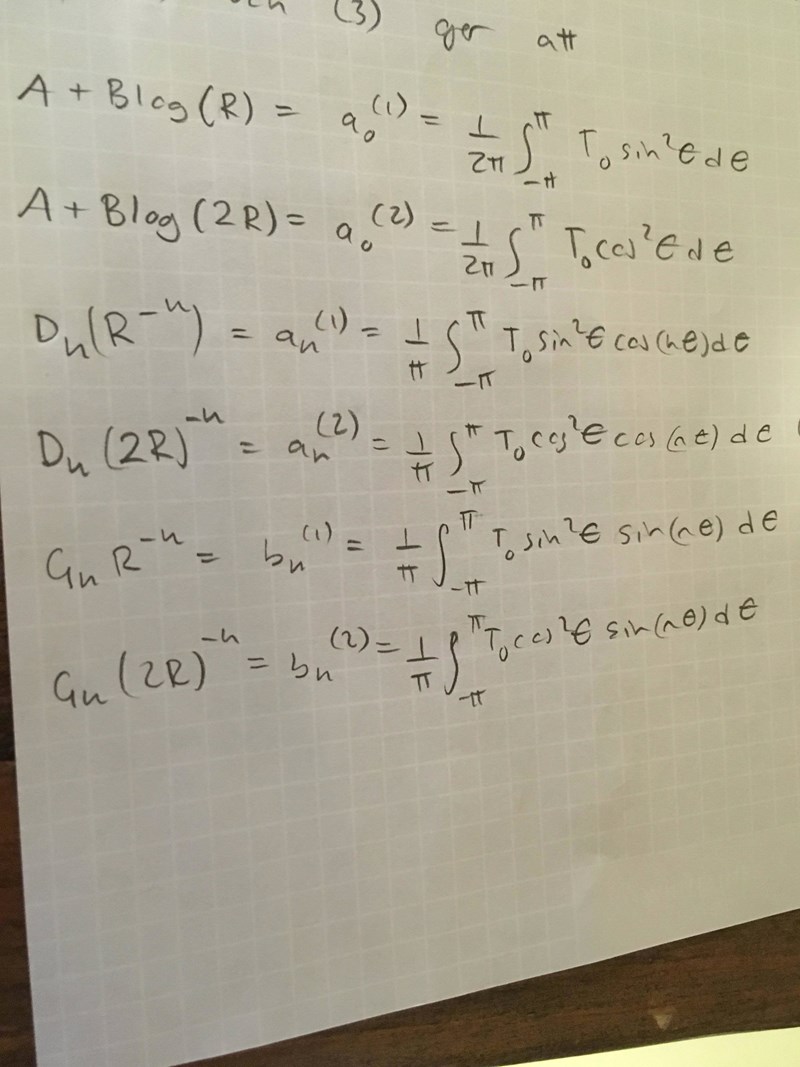 (3) ger att
A + Blog(R) = a₀⁽¹⁾ = 1/2π ∫_{-π}^{π} T₀ sin²θ dθ
A + Blog(2R) = a₀⁽²⁾ = 1/2π ∫_{-π}^{π} T₀ cos²θ dθ
Dₙ(R⁻ⁿ) = aₙ⁽¹⁾ = 1/π ∫_{-π}^{π} T₀ sin²θ cos(nθ)dθ
Dₙ(2R)⁻ⁿ = aₙ⁽²⁾ = 1/π ∫_{-π}^{π} T₀ cos²θ cos(nθ) dθ
Gₙ R⁻ⁿ = bₙ⁽¹⁾ = 1/π ∫_{-π}^{π} T₀ sin²θ sin(nθ) dθ
Gₙ (2R)⁻ⁿ = bₙ⁽²⁾ = 1/π ∫_{-π}^{π} T₀ cos²θ sin(nθ) dθ